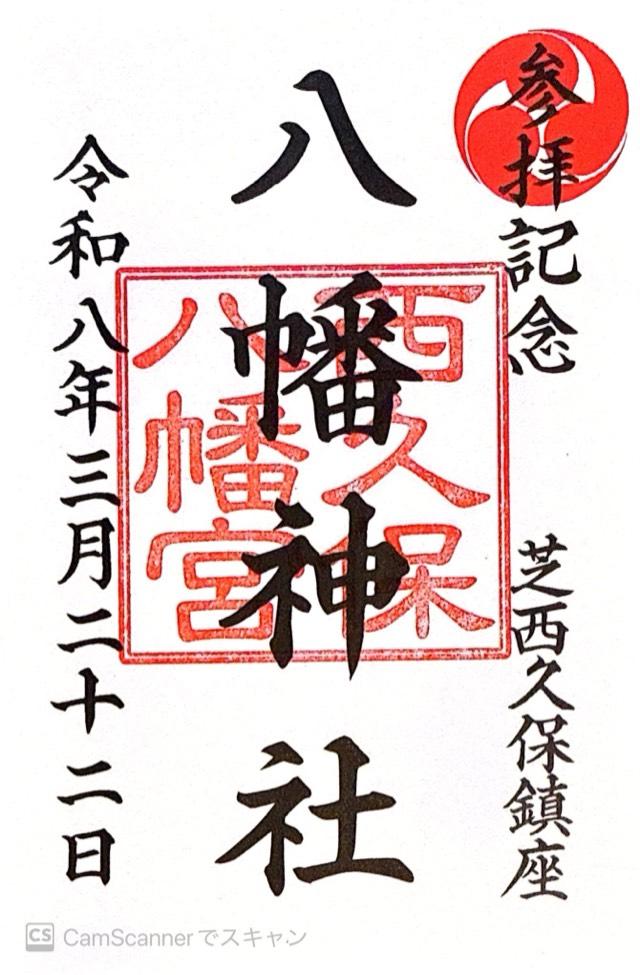 参拝記念
芝西久保鎮座
八幡神社
西久保
八幡宮
令和八年三月二十二日
CS CamScannerでスキャン